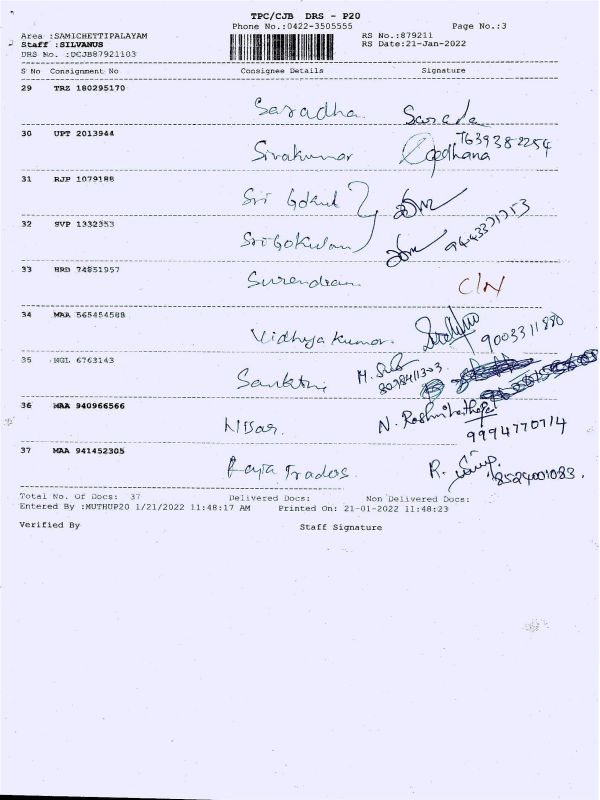 TPC/CJB DRS - P20
Phone No.:0422-3505555 Page No.:3
Area :SAMICHETTIPALAYAM RS No.:879211
Staff :SILVANUS RS Date:21-Jan-2022
DRS No. :DCJB87921103
S No Consignment No Consignee Details Signature
29 TRZ 180295170
Saradha Sarada
30 UPT 2013944
7639382254
Sivakumar
31 RJP 1079188
Sri Gokul
32 SVP 1332353
Sri Gokulam 9443371713
33 HRD 74851957
Surendran C/N
34 MAA 565454588
Vidhya Kumar 9003311880
35 NGL 6763143
36 MAA 940966566
Nisar. N.
9994770714
37 MAA 941452305
Raja Traders R. 8524001083.
Total No. Of Docs: 37 Delivered Docs: Non Delivered Docs:
Entered By :MUTHUP20 1/21/2022 11:48:17 AM Printed On: 21-01-2022 11:48:23
Verified By Staff Signature